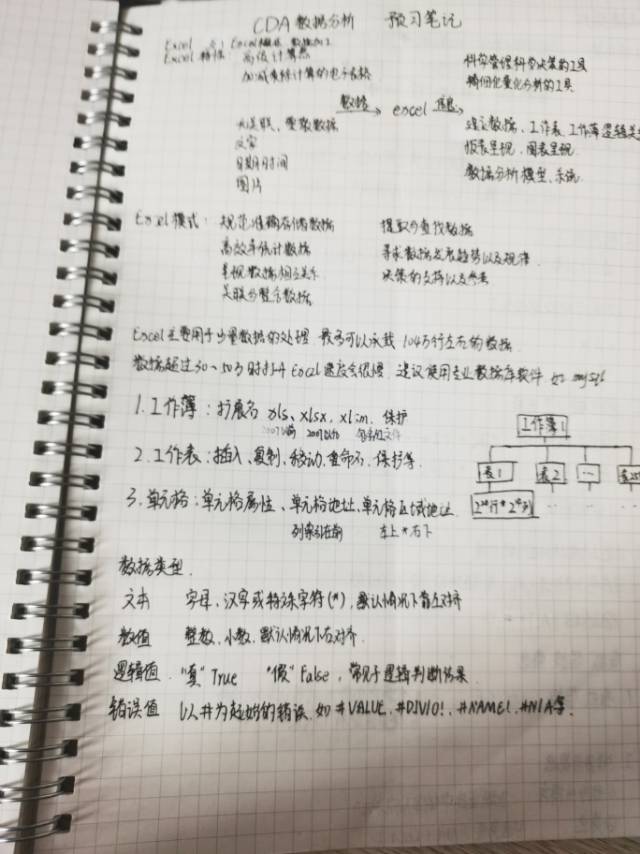 CDA数据分析 预习笔记
Excel
Excel 特性：高级计算器 科学管理科学决策的工具
加减乘除计算的电子表格 精细化量化分析的工具
数据 → excel 信息 →
建立数据、工作表、工作薄逻辑关
文字 报表呈现、图表呈现
日期时间 数据分析模型、系统
图片
Excel 模式：规范准确存储数据 提取与查找数据
高效率统计数据 寻求数据发展趋势以及规律
数据相互关系 决策的支持以及参考
关联与整合数据
Excel主要用于少量数据的处理，最多可以承载 104万行左右的数据
数据超过30~50万时打开Excel速度会很慢，建议使用专业数据库软件 如 mysql
1.工作薄：扩展名 xls、xlsx、xlsm、保护
2007以前 2007以后
2.工作表：插入、复制、移动、重命名、保护等.
3.单元格：单元格属性、单元格地址、单元格区域地址
列标引在前 左上*右下
工作薄1
表1 表2 ...
数据类型.
文本 字母、汉字或特殊字符(*)，默认情况下靠左对齐
数值 整数、小数，默认情况下右对齐.
逻辑值 "真" True "假" False，常见于逻辑判断结果.
错误值 以#为起始的错误，如#VALUE、#DIV/0!、#NAME!、#N/A等.